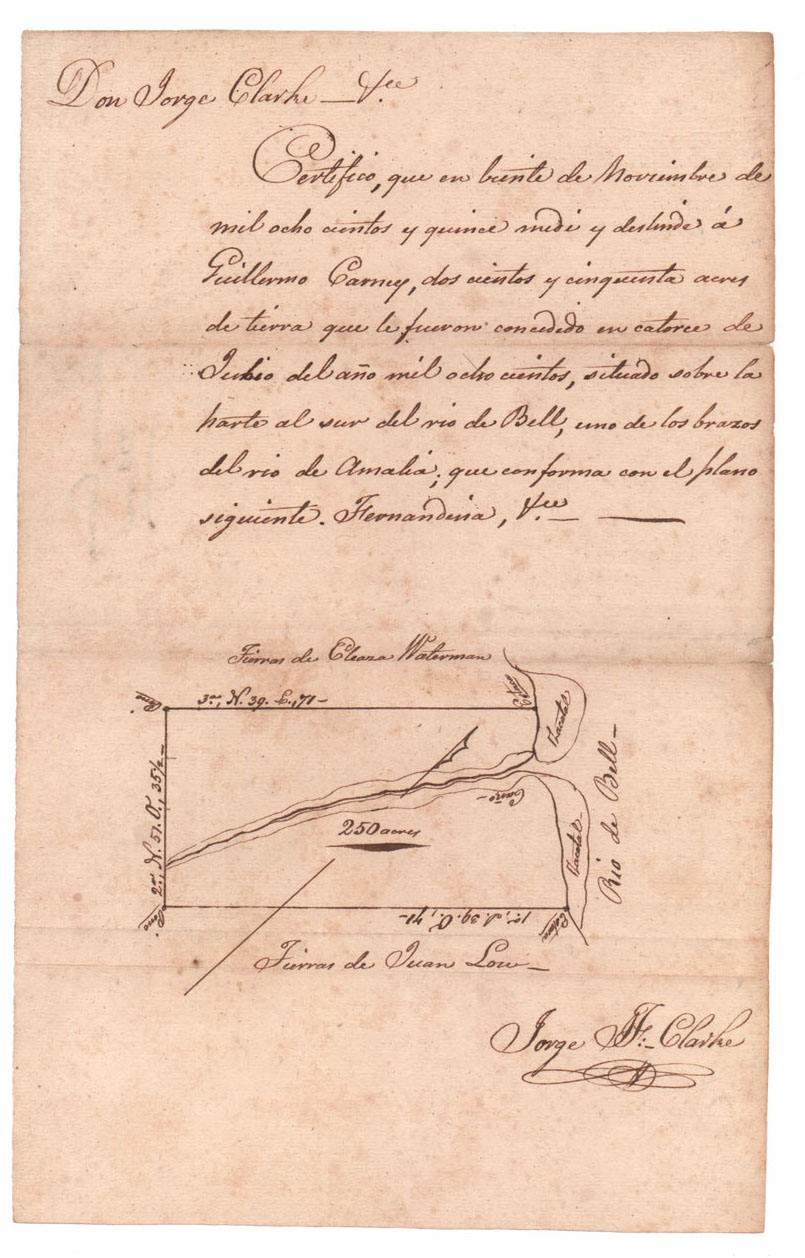 Don Jorge Clarke — &.ce
Certifico, que en biente de Noviembre de
mil ocho cientos y quince medi y deslinde á
Guillermo Carney, dos cientos y cinquenta acres
de tierra que le fueron concedido en catorce de
del año mil ocho cientos, situado sobre la
parte al sur del rio de Bell, uno de los brazos
del rio de Amalia; que conforma con el plano
siguiente. Fernandina, &.ce —
Tierras de Eleaza Waterman
3a., N. 39. E., 71 –
Zacatal
Rio de Bell –
2a., N. 51. O., 35½ –
Caño –
250 acres
Zacatal
Pino
1a., S. 39. O., 71 –
Tierras de Juan Low –
Jorge F. Clarke